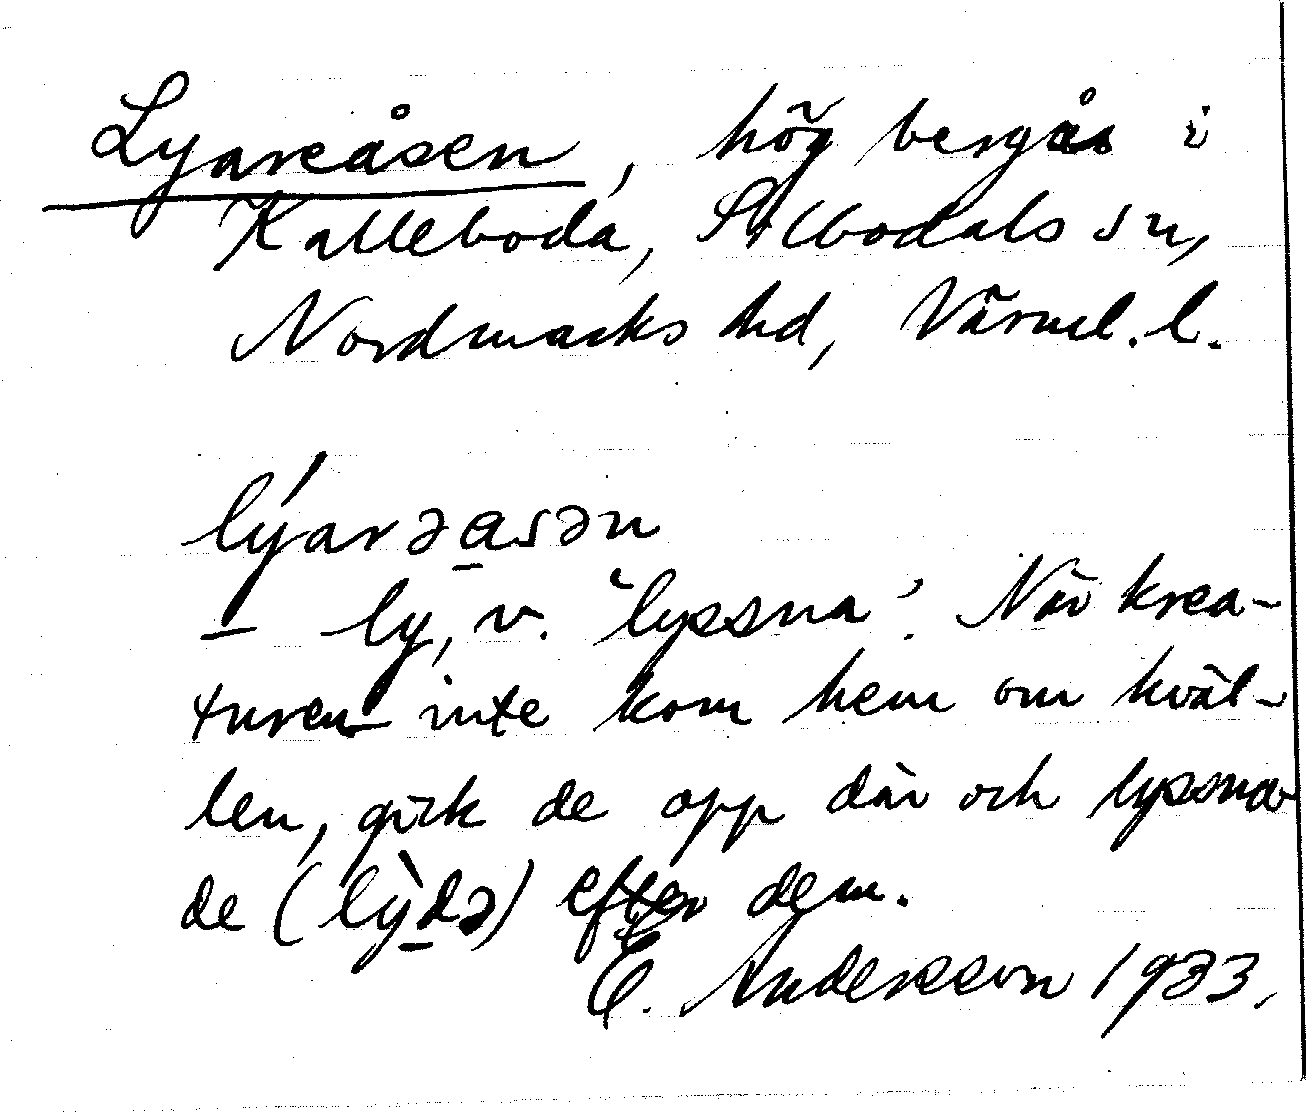 Lyareåsen, hög bergås i
Kalleboda, Silbodals sn,
Nordmarks hd, Värml. l.
lýarəa̲sən
— ly, v. 'lyssna'. När krea-
turen inte kom hem om kväl-
len, gick de opp där och lyssna
de (lỳd̲ə) efter dem.
E. Andersson 1933.